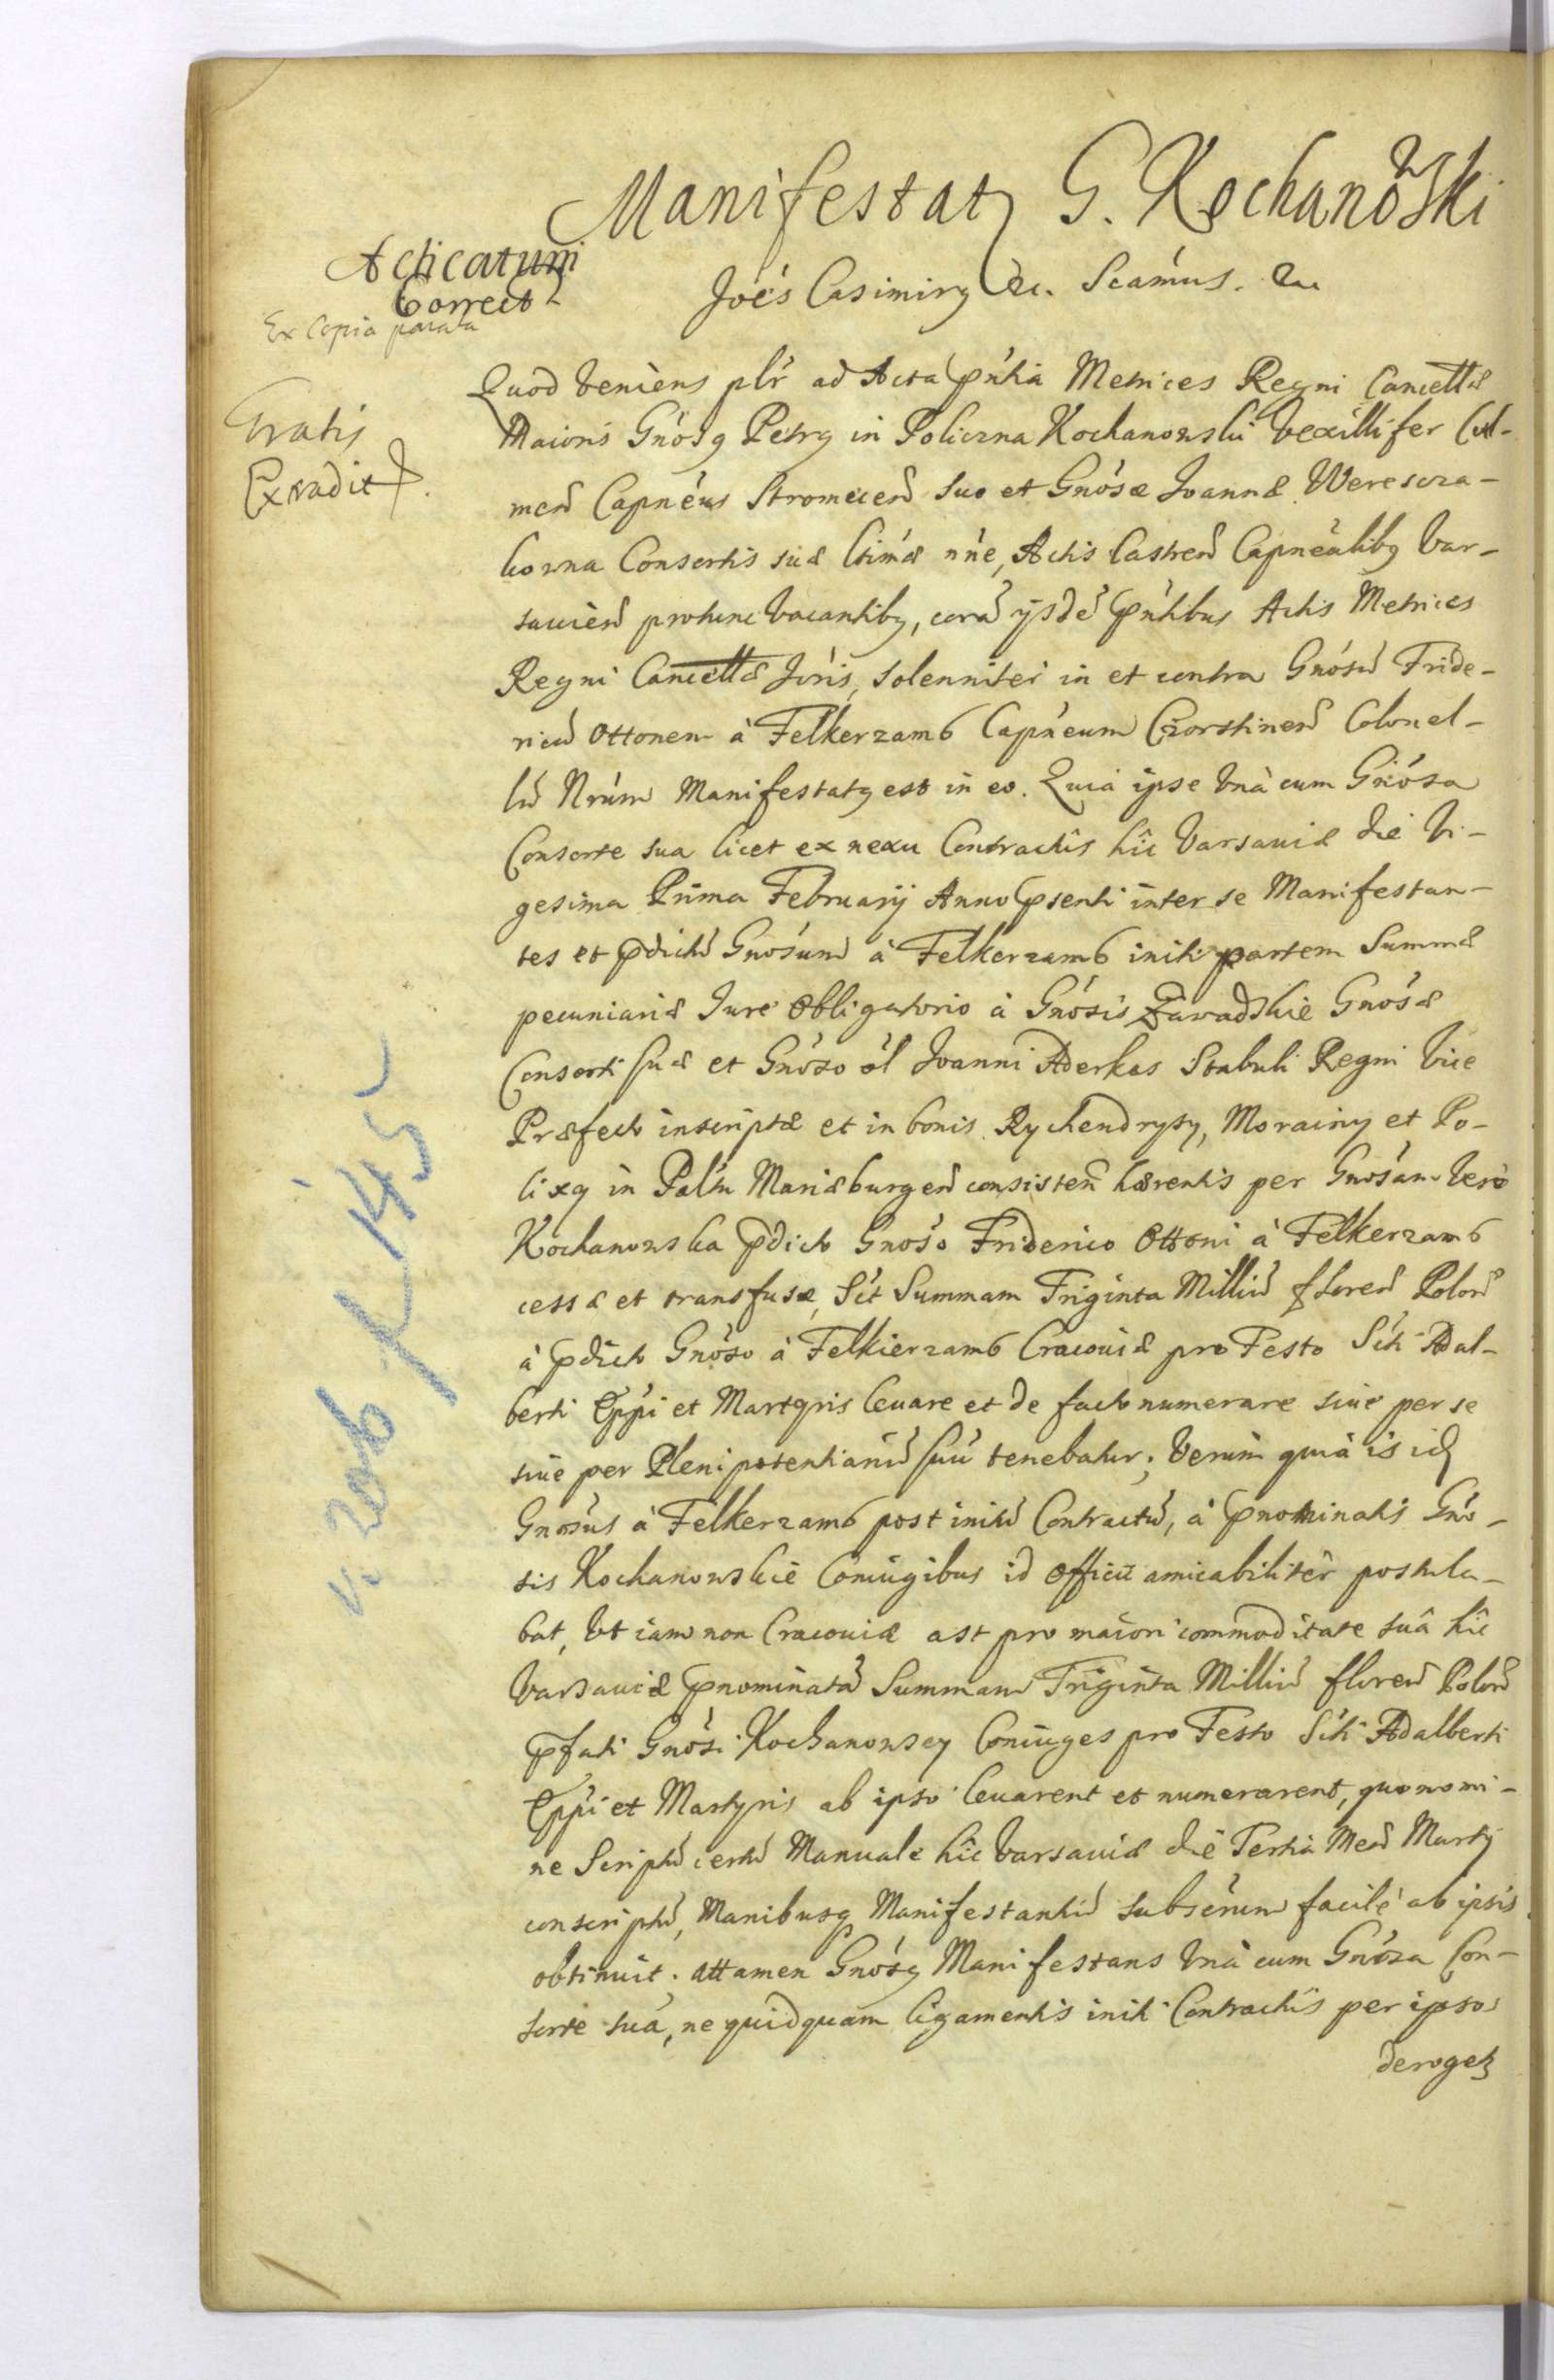 Manifestatꝯ G. Kochanowski
Acticatum
Correct
Ex Copia parata
Joés Casimirꝯ &c. Scámus. &c
Quod veniens plr ad Acta pńtia Metrices Regni Cancellæ
Gratis
Extradit
Maioris Gnósꝯ Petrꝯ in Policzna Kochanowski Vexillifer Cul-
meñ Capnéus Stromeceñ suo et Gnósæ Joannæ Weresczа-
kowna Consortis suæ ltimæ nńe, Actis Castreñ Capneálibꝯ Var-
sauieñ protunc vacantibꝯ, corã ijsdẽ pńtibus Actis Metrices
Regni Cancellæ Jóris, solenniter in et contra Gnósũ Fride-
ricũ Ottonem à Felkerzamb Capńeum Czorstineñ Colonel-
lũ Nrúm Manifestatꝯ est in eo. Quia ipse vnà cum Gnósa
Consorte sua licet ex nexu Contractûs hîc Varsauiæ die Vi-
gesima Prima Februarij Anno psenti inter se Manifestan-
tes et pdictũ Gnosúm à Felkerzamb initi partem Summæ
pecuniariæ Jure Obligatorio à Gnósis Zawadskie Gnósæ
Consorti suæ et Gnóso ol Joanni Aderkas Stabuli Regni Vice
Præfecto inscriptæ et in bonis Rychendrysy, Morainy et Po-
lixy in Paltu Mariæburgeñ consisteñ hærentis per Gnosám vero
Kochanowska pdicto Gnosó Friderico Ottoni à Felkerzamb
cessæ et transfusæ, Sct Summam Triginta Milliũ floreñ Poloñ
à pdicto Gnóso à Felkierzamb Cracouiæ pro Festo Scti Adal-
berti Eppi et Martyris leuare et de facto numerare siue per se
siue per Plenipotentiariũ suũ tenebatur; Verum quia is id
Gnosús à Felkerzamb post initũ Contractũ, à pnominatis Gnó-
sis Kochanowskie Coniugibus id officij amicabiliter postula-
bat, Vt iam non Cracouiæ ast pro maiori commoditate suâ hîc
Varsauiæ pnominatã Summam Triginta Milliũ floreñ Poloñ
pfati Gnósi Kochanowscy Coniuges pro Festo Scti Adalberti
Eppi et Martyris ab ipso leuarent et numerarent, quo nomi-
ne Scriptũ certũ Manuale hîc Varsauiæ die Tertia Meñ Martij
conscriptũ, Manibusꝗ Manifestantiũ subscrium facile ab ipsis
obtinuit; attamen Gnósꝯ Manifestans vnà cum Gnósa Con-
sorte suá, ne quidquam ligamentis initi Contractûs per ipsos
derogetꝫ
v. 206 K 145